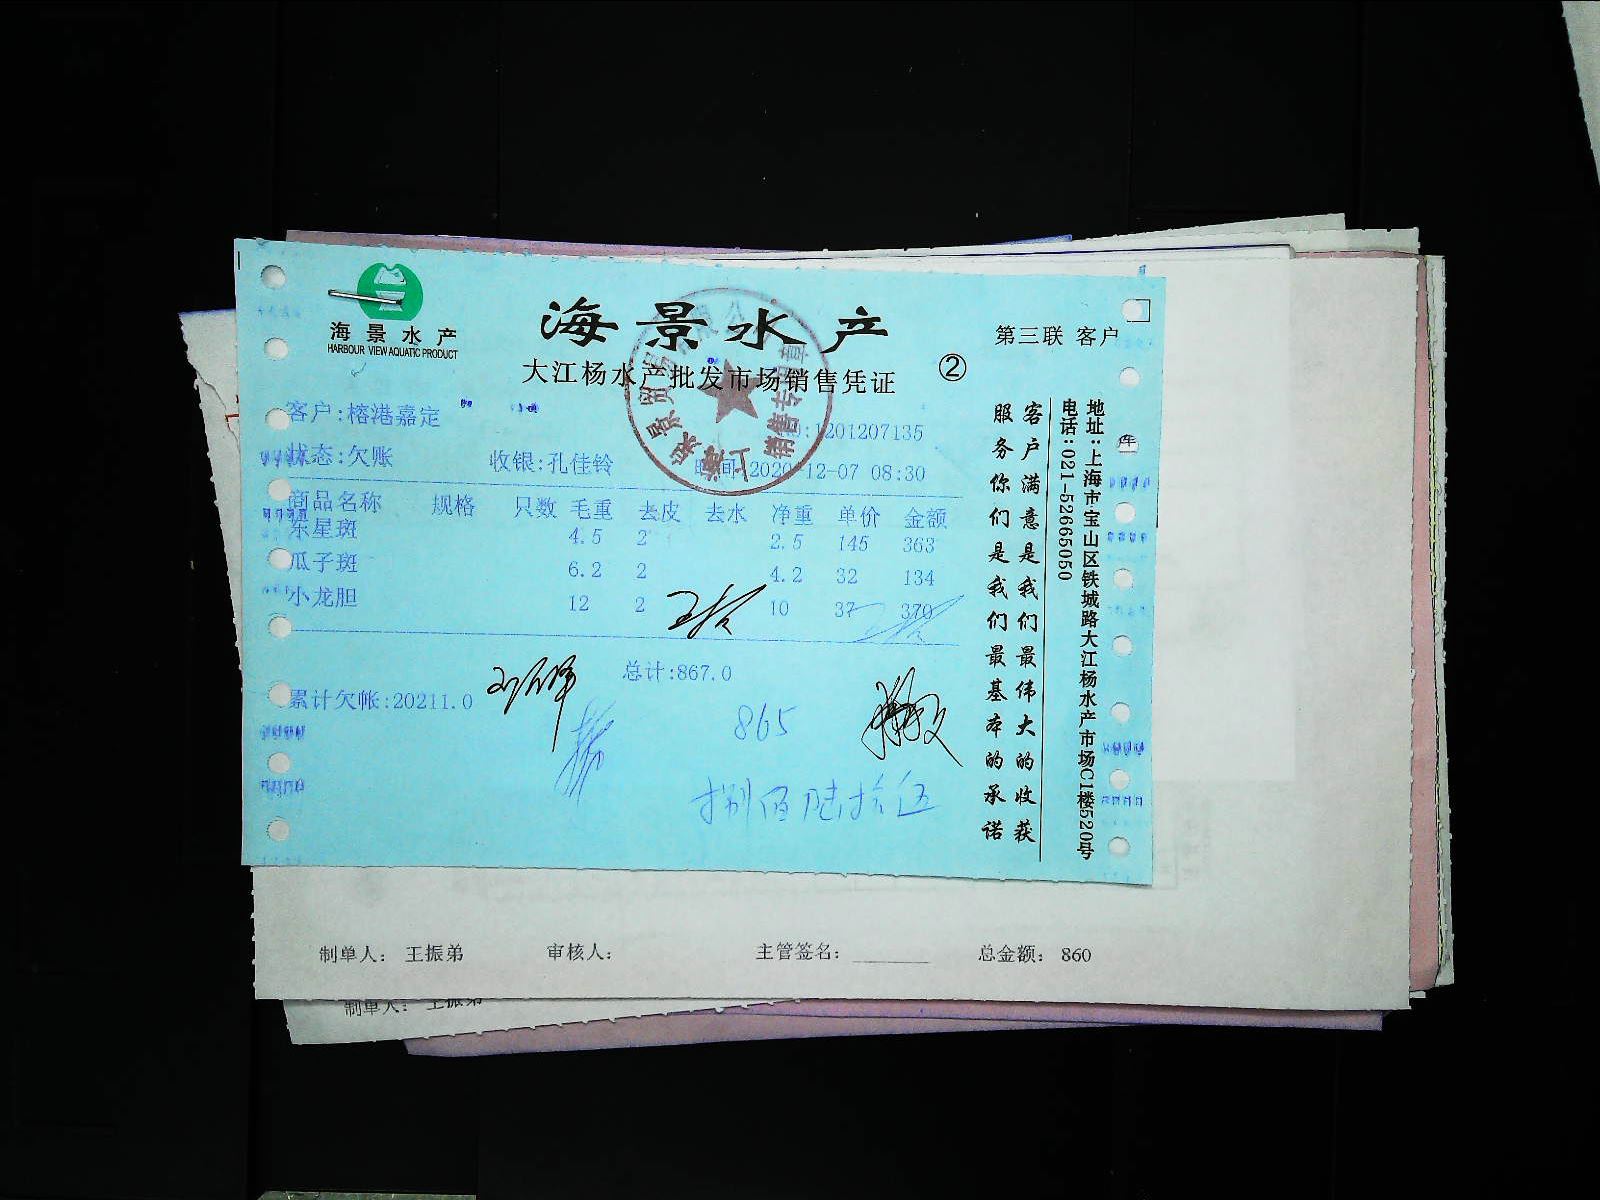 海景水产
HARBOUR VIEW AQUATIC PRODUCT
海景水产
大江杨水产批发市场销售凭证
②
第三联 客户
客户:榕港嘉定
:1201207135
状态:欠账 收银:孔佳铃 时间:2020-12-07 08:30
商品名称 规格 只数 毛重 去皮 去水 净重 单价 金额
东星斑 4.5 2 2.5 145 363
瓜子斑 6.2 2 4.2 32 134
小龙胆 12 2 10 37 370
总计:867.0
累计欠帐:20211.0
865
捌佰陆拾伍
客户满意是我们最伟大的收获
服务你们是我们最基本的承诺
地址:上海市宝山区铁城路大江杨水产市场C1楼520号
电话:021-52665050
制单人: 王振弟 审核人: 主管签名: 总金额: 860
制单人: 王振弟